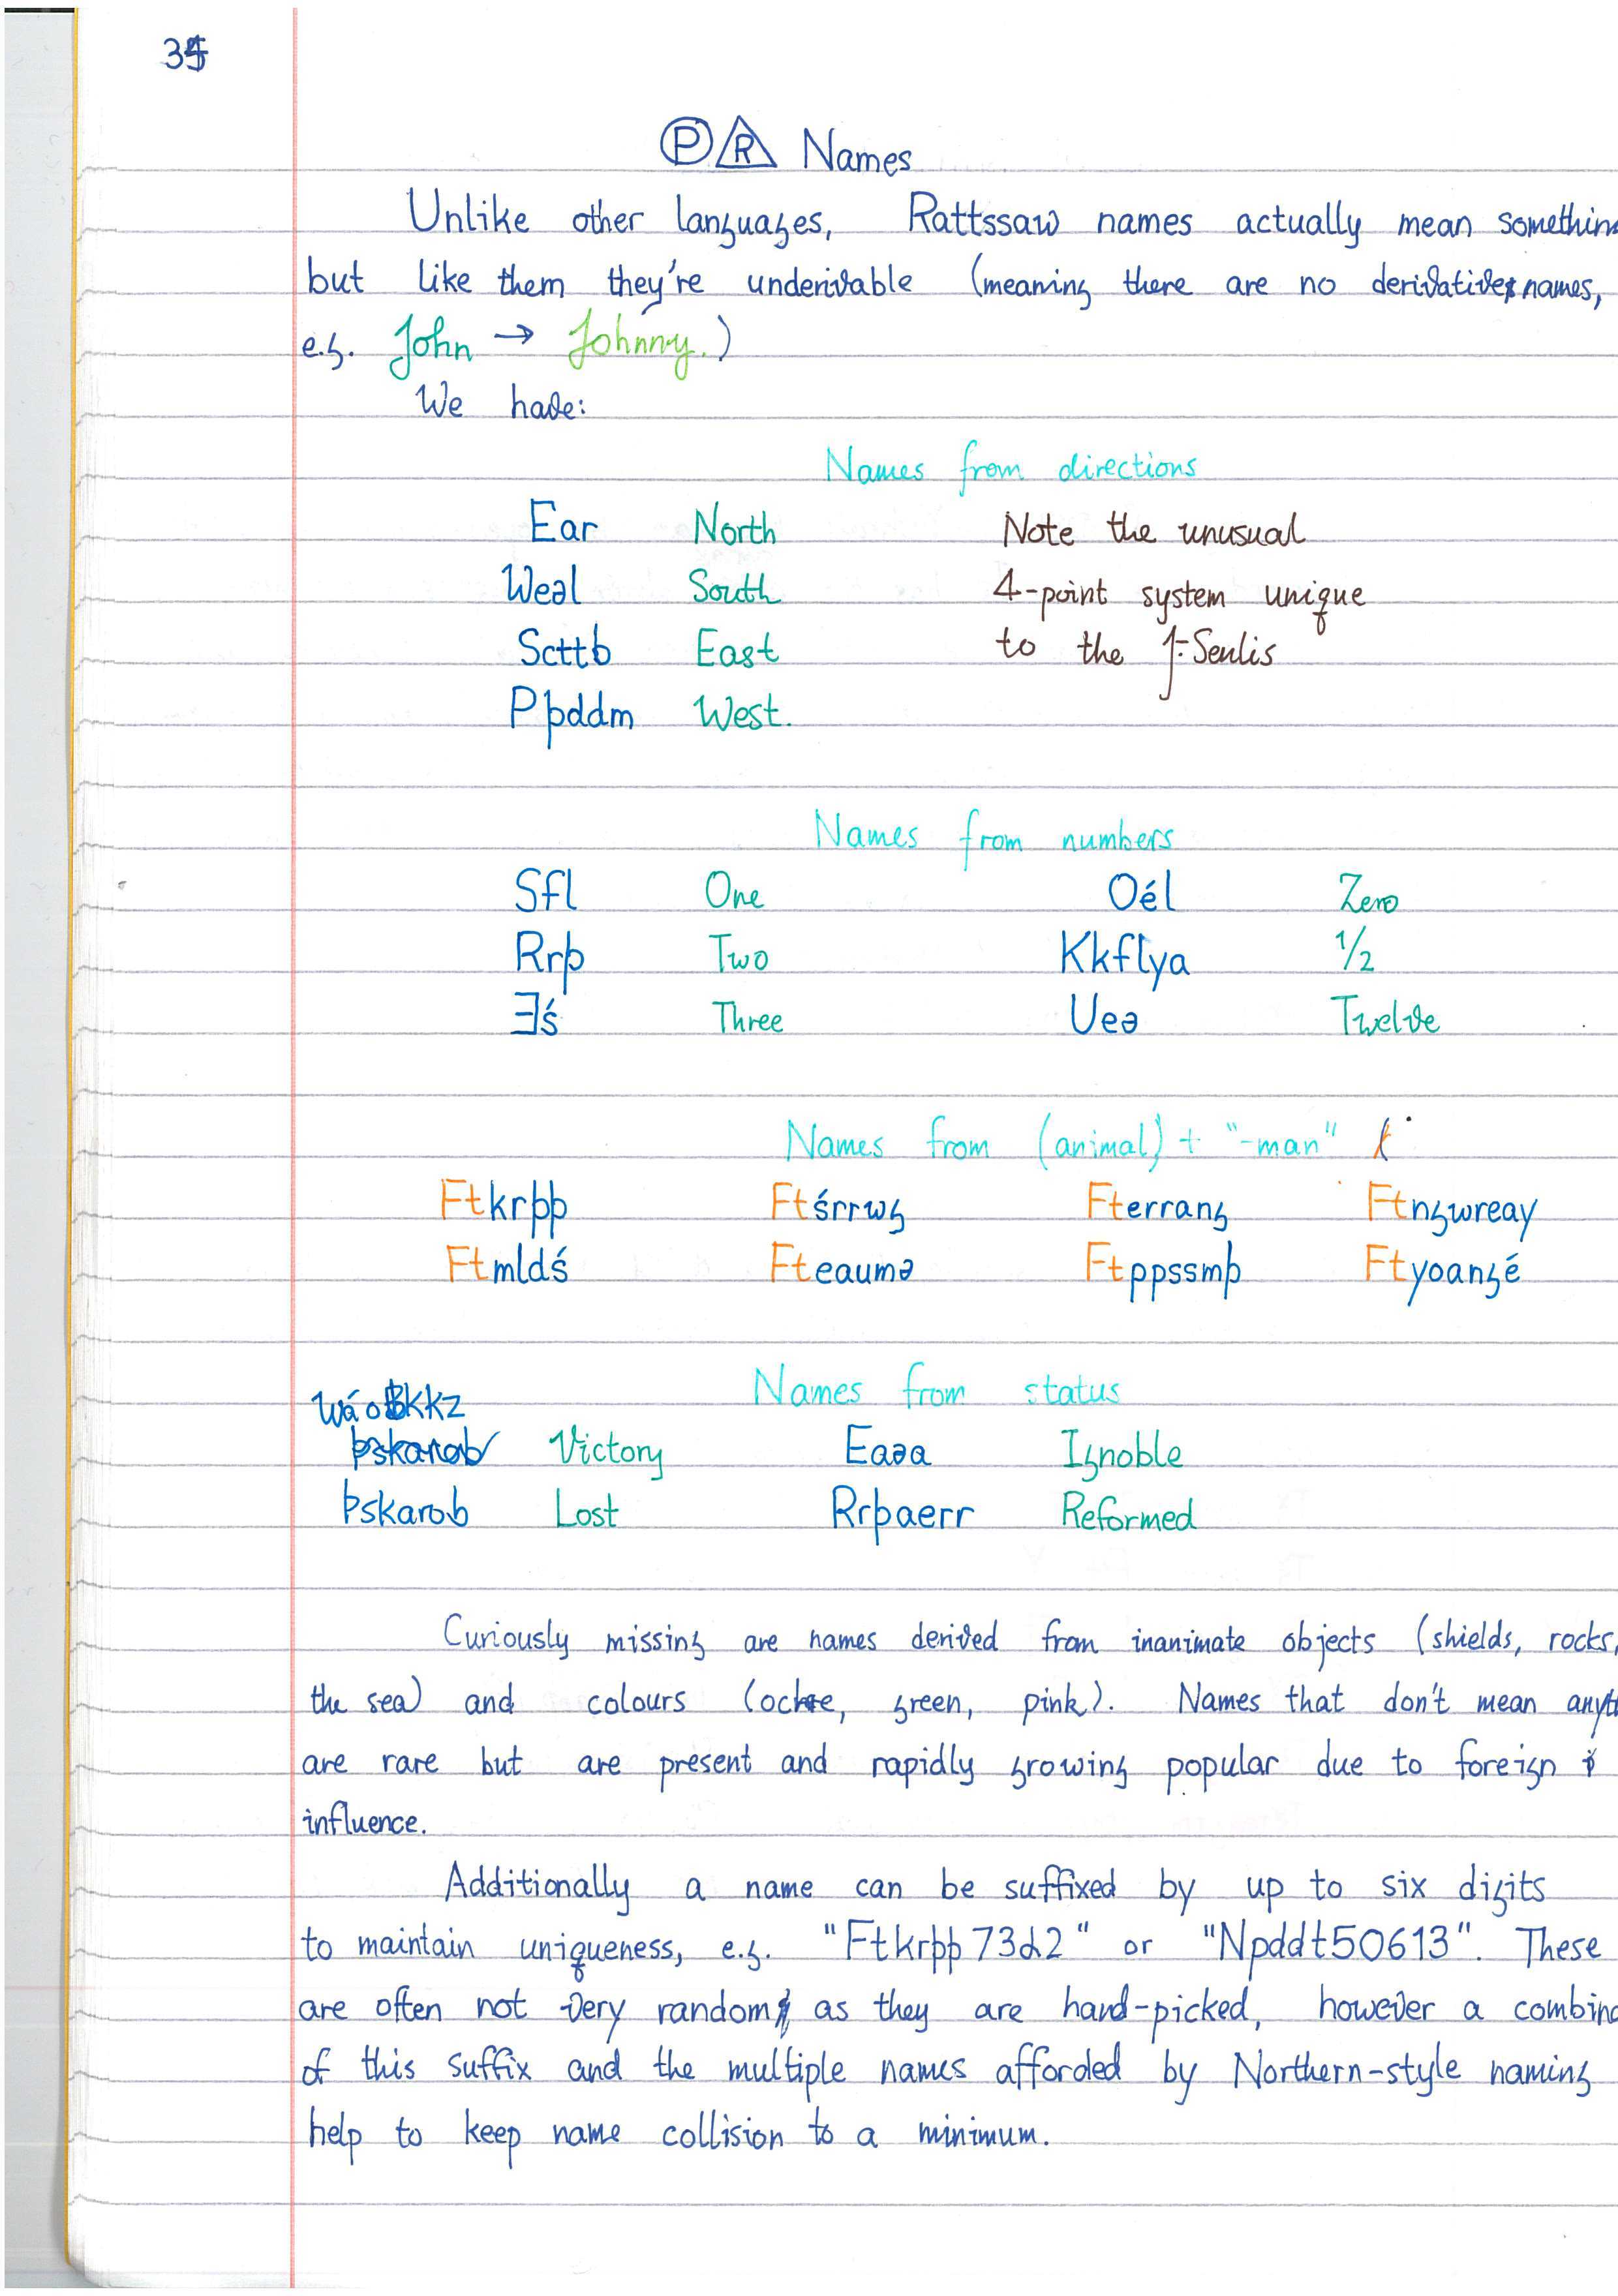 Ⓟ R Names
Unlike other languages, Rattssaw names actually mean somethin
but like them they're underivable (meaning there are no derivative names,
e.g. John → Johnny.)
We have:
Names from directions
Ear North Note the unusual
Weəl South 4-point system unique
Scttb East to the
Pþddm West.
Names from numbers
Sfl One Oél Zero
Rrþ Two Kkflya 1/2
Ǝś Three Ueə Twelve
Names from (animal) + "-man"
Ftkrþþ Ftśrrwg Fterrang Ftngwreay
Ftmldś Fteaumə Ftppssmþ Ftyoangé
Names from status
Victory Eaəa Ignoble
Þskarob Lost Rrþaerr Reformed
Curiously missing are names derived from inanimate objects (shields, rocks,
the sea) and colours (ochre, green, pink). Names that don't mean anyth
are rare but are present and rapidly growing popular due to foreign
influence.
Additionally a name can be suffixed by up to six digits
to maintain uniqueness, e.g. "Ftkrþþ 73d2" or "Npddt50613". These
are often not very random as they are hand-picked, however a combina
of this suffix and the multiple names afforded by Northern-style naming
help to keep name collision to a minimum.